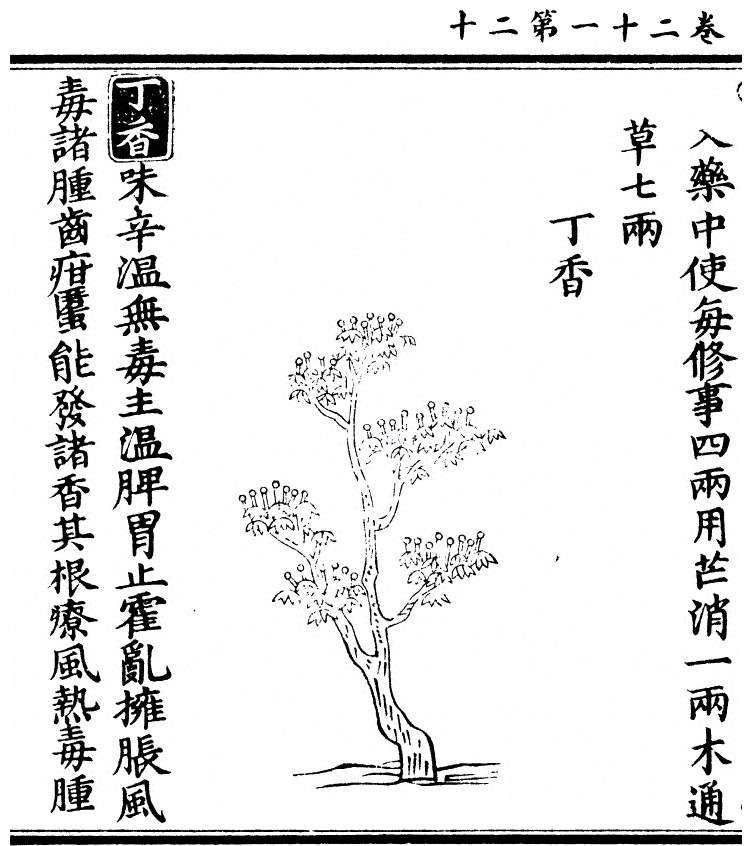 卷二十一第二十
入藥中使每修事四兩用芒消一兩木通
草七兩
丁香
丁香味辛溫無毒主溫脾胃止霍亂擁脹風
毒諸腫齒疳䘌能發諸香其根療風熱毒腫